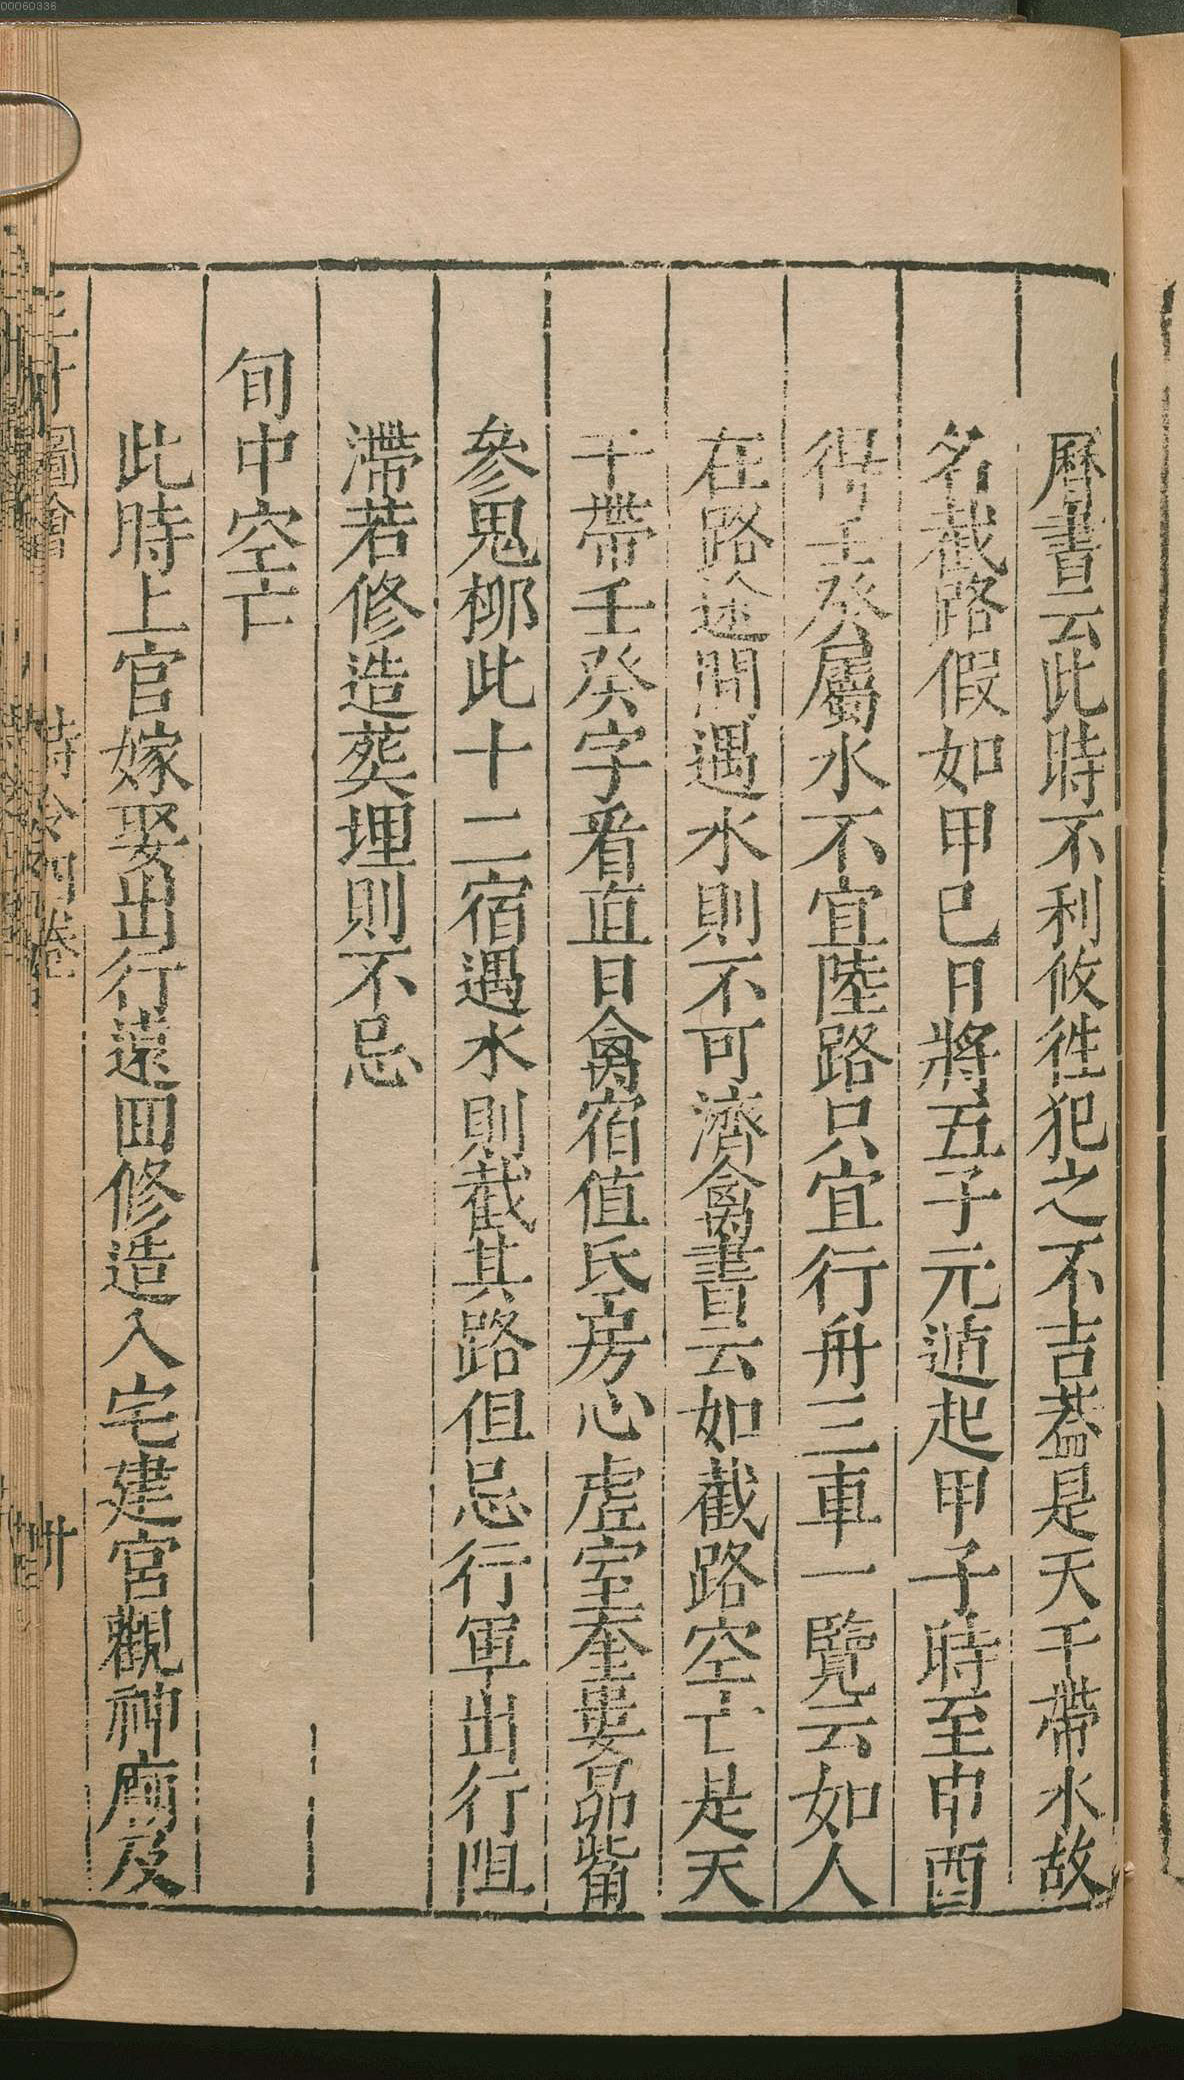 00060336
曆書云此時不利攸徃犯之不吉葢是天干帶水故
名截路假如甲巳日將五子元遁起甲子時至申酉
得壬癸屬水不宜陸路只宜行舟三車一覽云如人
在路途間遇水則不可濟禽書云如截路空亡是天
干帶壬癸字看直日禽宿值氐房心虛室奎婁昴觜
參鬼柳此十二宿遇水則截其路但忌行軍出行阻
滯若修造葬埋則不忌
旬中空亡
此時上官嫁娶出行遠回修造入宅建宮觀神廟及
圖會 時令 卷 卅